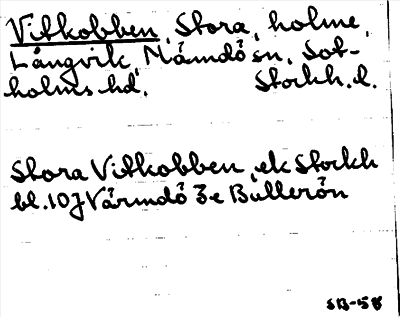 Vitkobben, Stora, holme,
Långvik, Nämdö sn, Sot-
holms hd, Stockh. l.
Stora Vitkobben, ek Stockh
bl. 10J Värmdö 3e Bullerön
SB-58